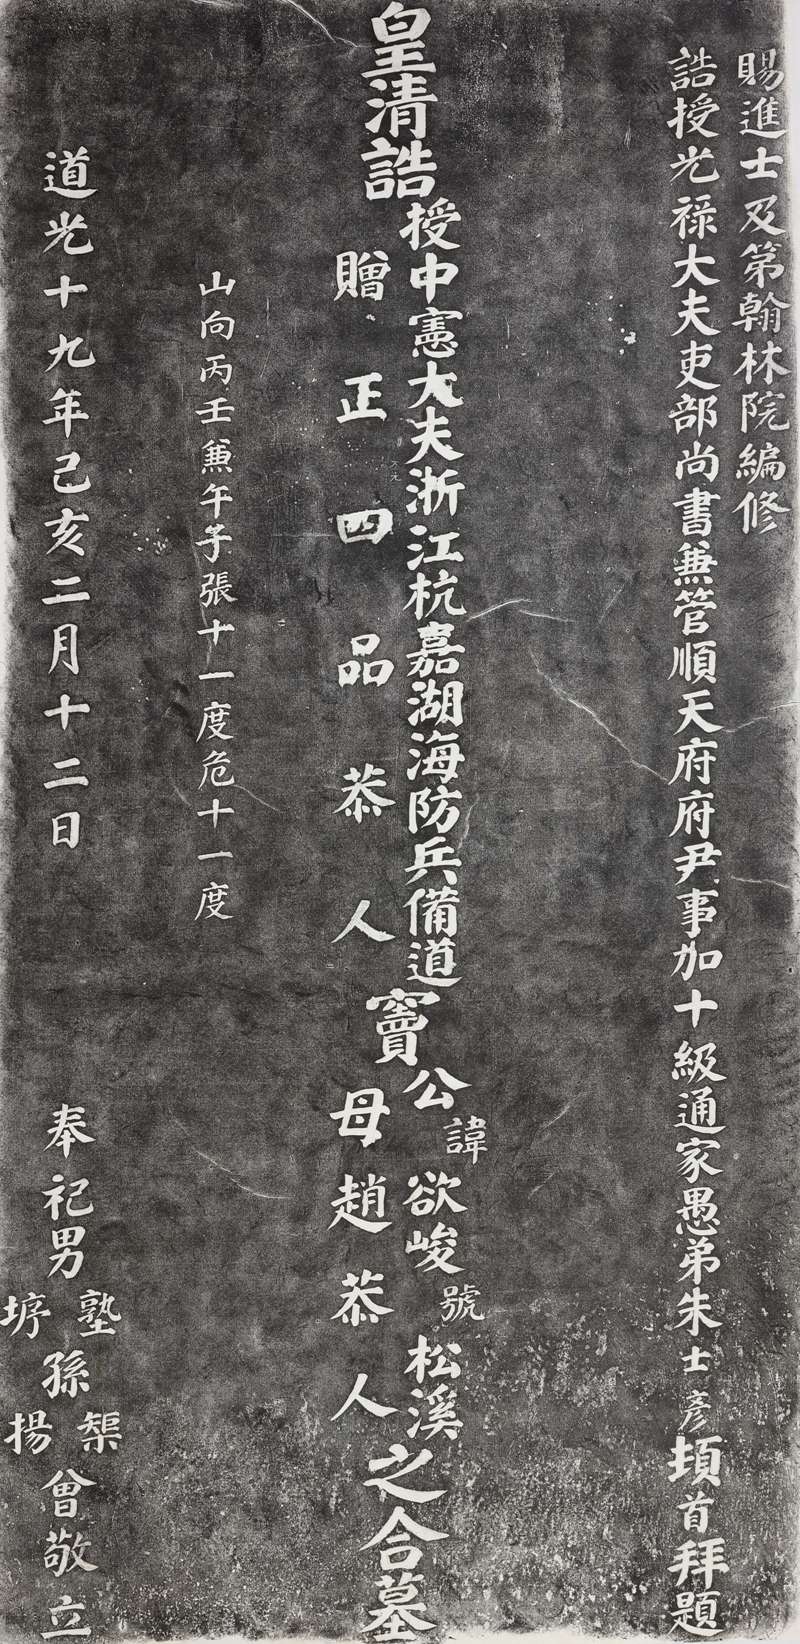 賜進士及第翰林院編修
誥授光祿大夫吏部尚書兼管順天府府尹事加十級通家愚弟朱士彥頓首拜題
皇清誥授中憲大夫浙江杭嘉湖海防兵備道竇公諱欲峻號松溪之合墓
贈正四品恭人竇母趙恭人
山向丙壬兼午子張十一度危十一度
道光十九年己亥二月十二日
奉祀男塾垿孫榘揚曾敬立